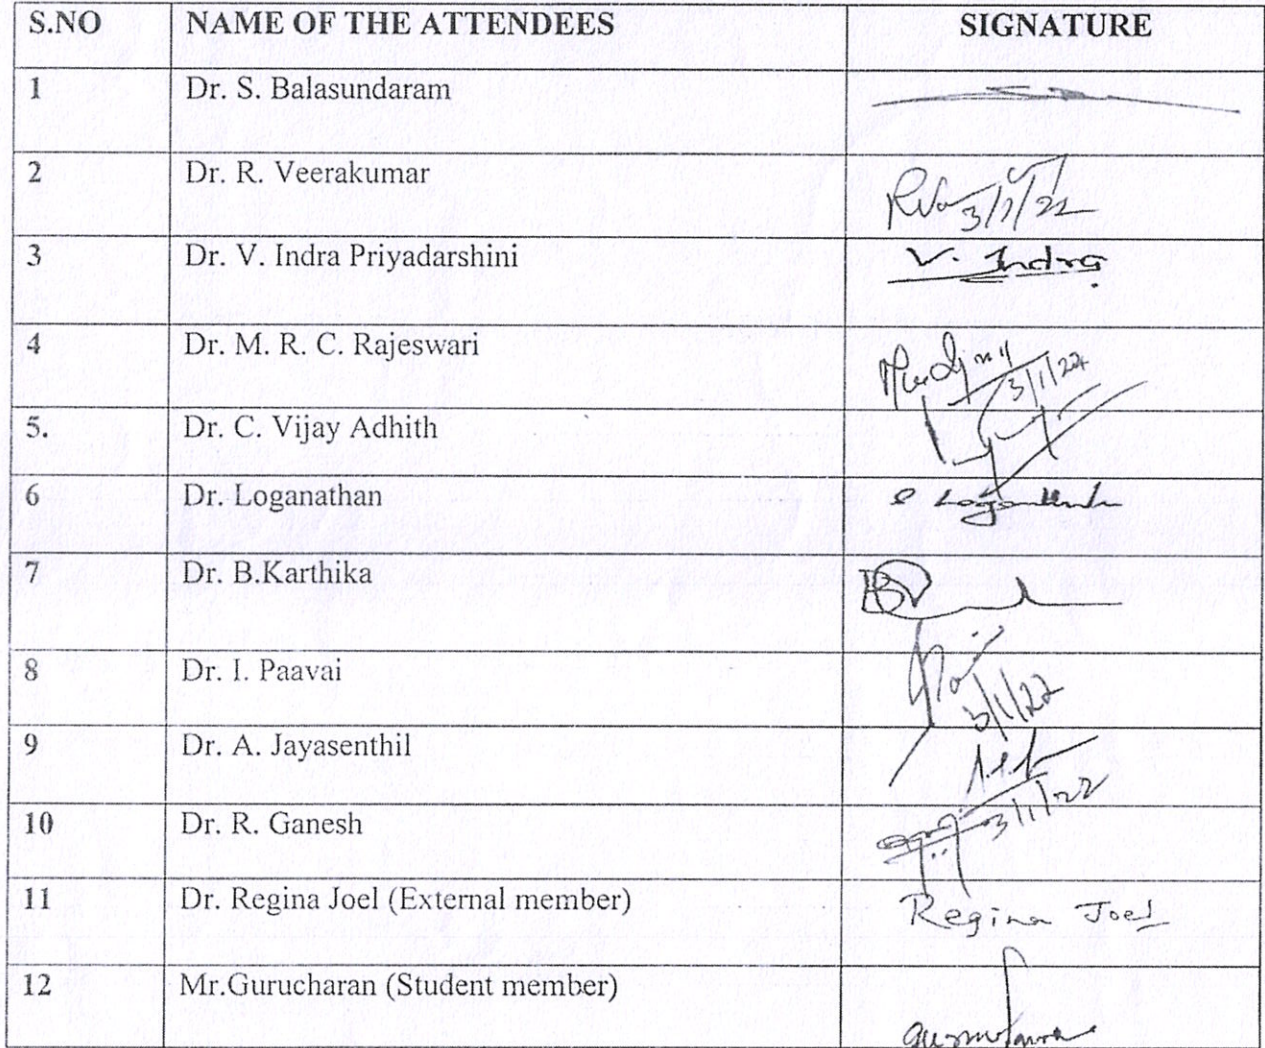 S.NO NAME OF THE ATTENDEES SIGNATURE
1 Dr. S. Balasundaram
2 Dr. R. Veerakumar 3/1/22
3 Dr. V. Indra Priyadarshini V. Indra
4 Dr. M. R. C. Rajeswari 3/1/22
5. Dr. C. Vijay Adhith
6 Dr. Loganathan
7 Dr. B.Karthika
8 Dr. I. Paavai 3/1/22
9 Dr. A. Jayasenthil 3/1/22
10 Dr. R. Ganesh
11 Dr. Regina Joel (External member) Regina Joel
12 Mr.Gurucharan (Student member)